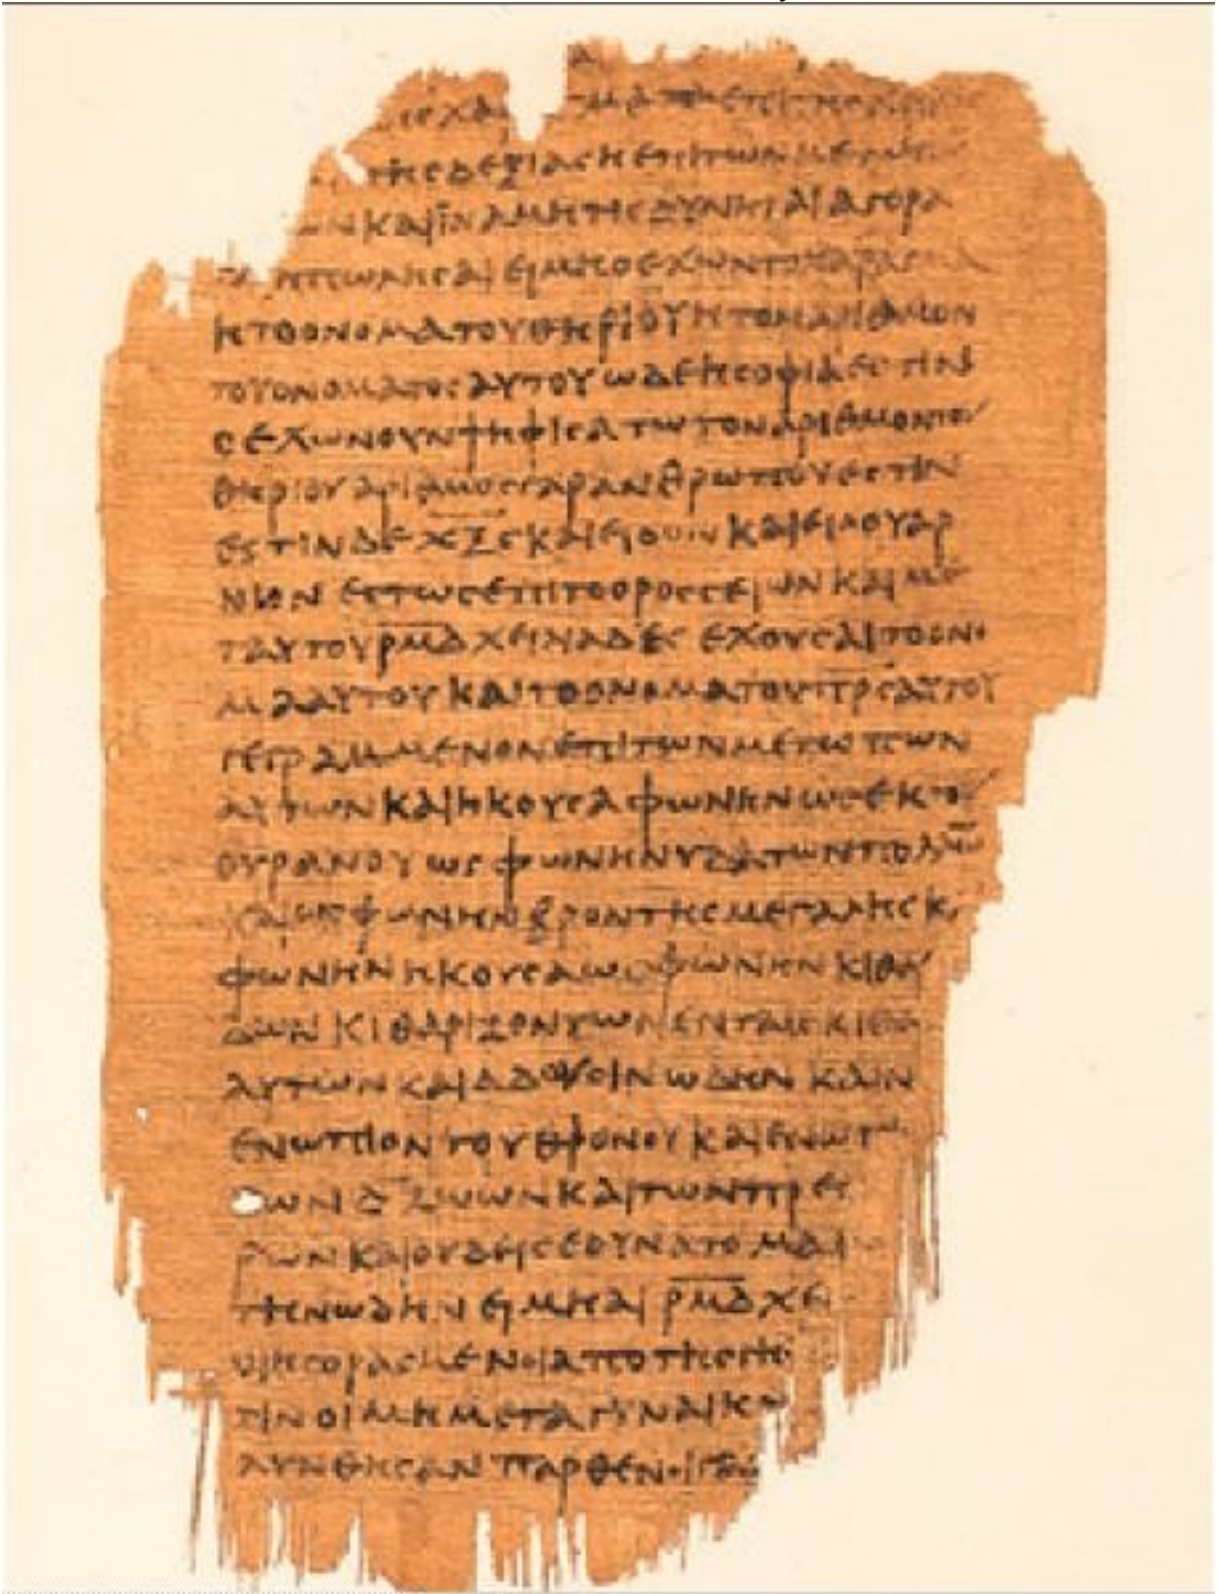 ΧΑ ΓΜΑ ΕΠΙΤΗϹ
ΤΗϹΔΕΞΙΑϹΗΕΠΙΤΩΝΜΕΤΩ
ΩΝΚΑΙΪΝΑΜΗΤΙϹΔΥΝΗΤΑΙΑΓΟΡΑ
ΗΠΩΛΗϹΑΙΕΙΜΗΟΕΧΩΝΤΟΧΑΡΑΓΜΑ
ΗΤΟΟΝΟΜΑΤΟΥΘΗΡΙΟΥΗΤΟΝΑΡΙΘΜΟΝ
ΤΟΥΟΝΟΜΑΤΟϹΑΥΤΟΥΩΔΕΗϹΟΦΙΑΕϹΤΙΝΟ
ϹΕΧΩΝΟΥΝΨΗΦΙϹΑΤΩΤΟΝΑΡΙΘΜΟΝΤΟΥ
ΘΗΡΙΟΥΑΡΙΘΜΟϹΓΑΡΑΝΘΡΩΠΟΥΕϹΤΙΝ
ΕϹΤΙΝΔΕΧΞϚΚΑΙΕΙΔΟΝΚΑΙΕΙΔΟΥΑΡ
ΝΙΟΝΕϹΤΩϹΕΠΙΤΟΟΡΟϹϹΕΙΩΝΚΑΙΜΕ
ΤΑΥΤΟΥΡΜΔΧΕΙΛΙΑΔΕϹΕΧΟΥϹΑΙΤΟΟΝΟ
ΜΑΑΥΤΟΥΚΑΙΤΟΟΝΟΜΑΤΟΥΠΡϹΑΥΤΟΥ
ΓΕΓΡΑΜΜΕΝΟΝΕΠΙΤΩΝΜΕΤΩΠΩΝ
ΑΥΤΩΝΚΑΙΗΚΟΥϹΑΦΩΝΗΝΩϹΕΚΤΟΥ
ΟΥΡΑΝΟΥΩϹΦΩΝΗΝΥΔΑΤΩΝΠΟΛΛΩ̅
ΚΑΙΩϹΦΩΝΗΝΒΡΟΝΤΗϹΜΕΓΑΛΗϹΚ
ΦΩΝΗΝΗΚΟΥϹΑΩϹΦΩΝΗΝΚΙΘΑΡ
ΔΩΝΚΙΘΑΡΙΖΟΝΤΩΝΕΝΤΑΙϹΚΙΘΑ
ΑΥΤΩΝΚΑΙΑΔΟΥϹΙΝΩΔΗΝΚΑΙΝ
ΕΝΩΠΙΟΝΤΟΥΘΡΟΝΟΥΚΑΙΕΝΩΠ
ΤΩΝΔ̅ΖΩΩΝΚΑΙΤΩΝΠΡΕϹ
ΡΩΝΚΑΙΟΥΔΕΙϹΕΔΥΝΑΤΟΜΑ
ΤΗΝΩΔΗΝΕΙΜΗΑΙΡΜΔΧΕΙ
ΟΙΗΓΟΡΑϹΜΕΝΟΙΑΠΟΤΗϹΓΗϹ
ΤΙΝΟΙΜΗΜΕΤΑΓΥΝΑΙΚΩ
ΛΥΝΘΗϹΑΝΠΑΡΘΕΝΟΙΓΑΡ